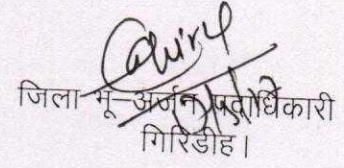 जिला भू–अर्जन पदाधिकारी
गिरिडीह।